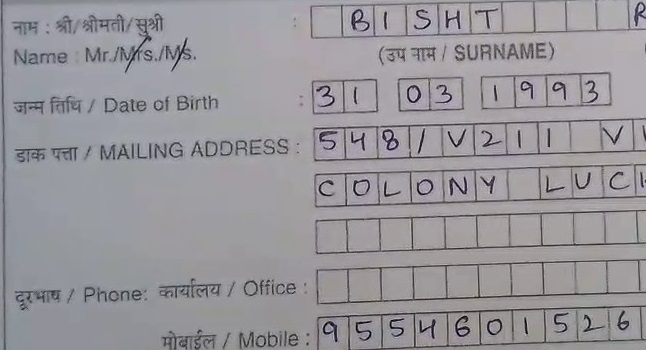 नाम : श्री/श्रीमती/सुश्री : BISHT R
Name : Mr./Mrs./Ms. (उप नाम / SURNAME)
जन्म तिथि / Date of Birth : 31 03 1993
डाक पत्ता / MAILING ADDRESS : 548/V211 V
COLONY LUC
दूरभाष / Phone: कार्यालय / Office :
मोबाईल / Mobile : 9554601526